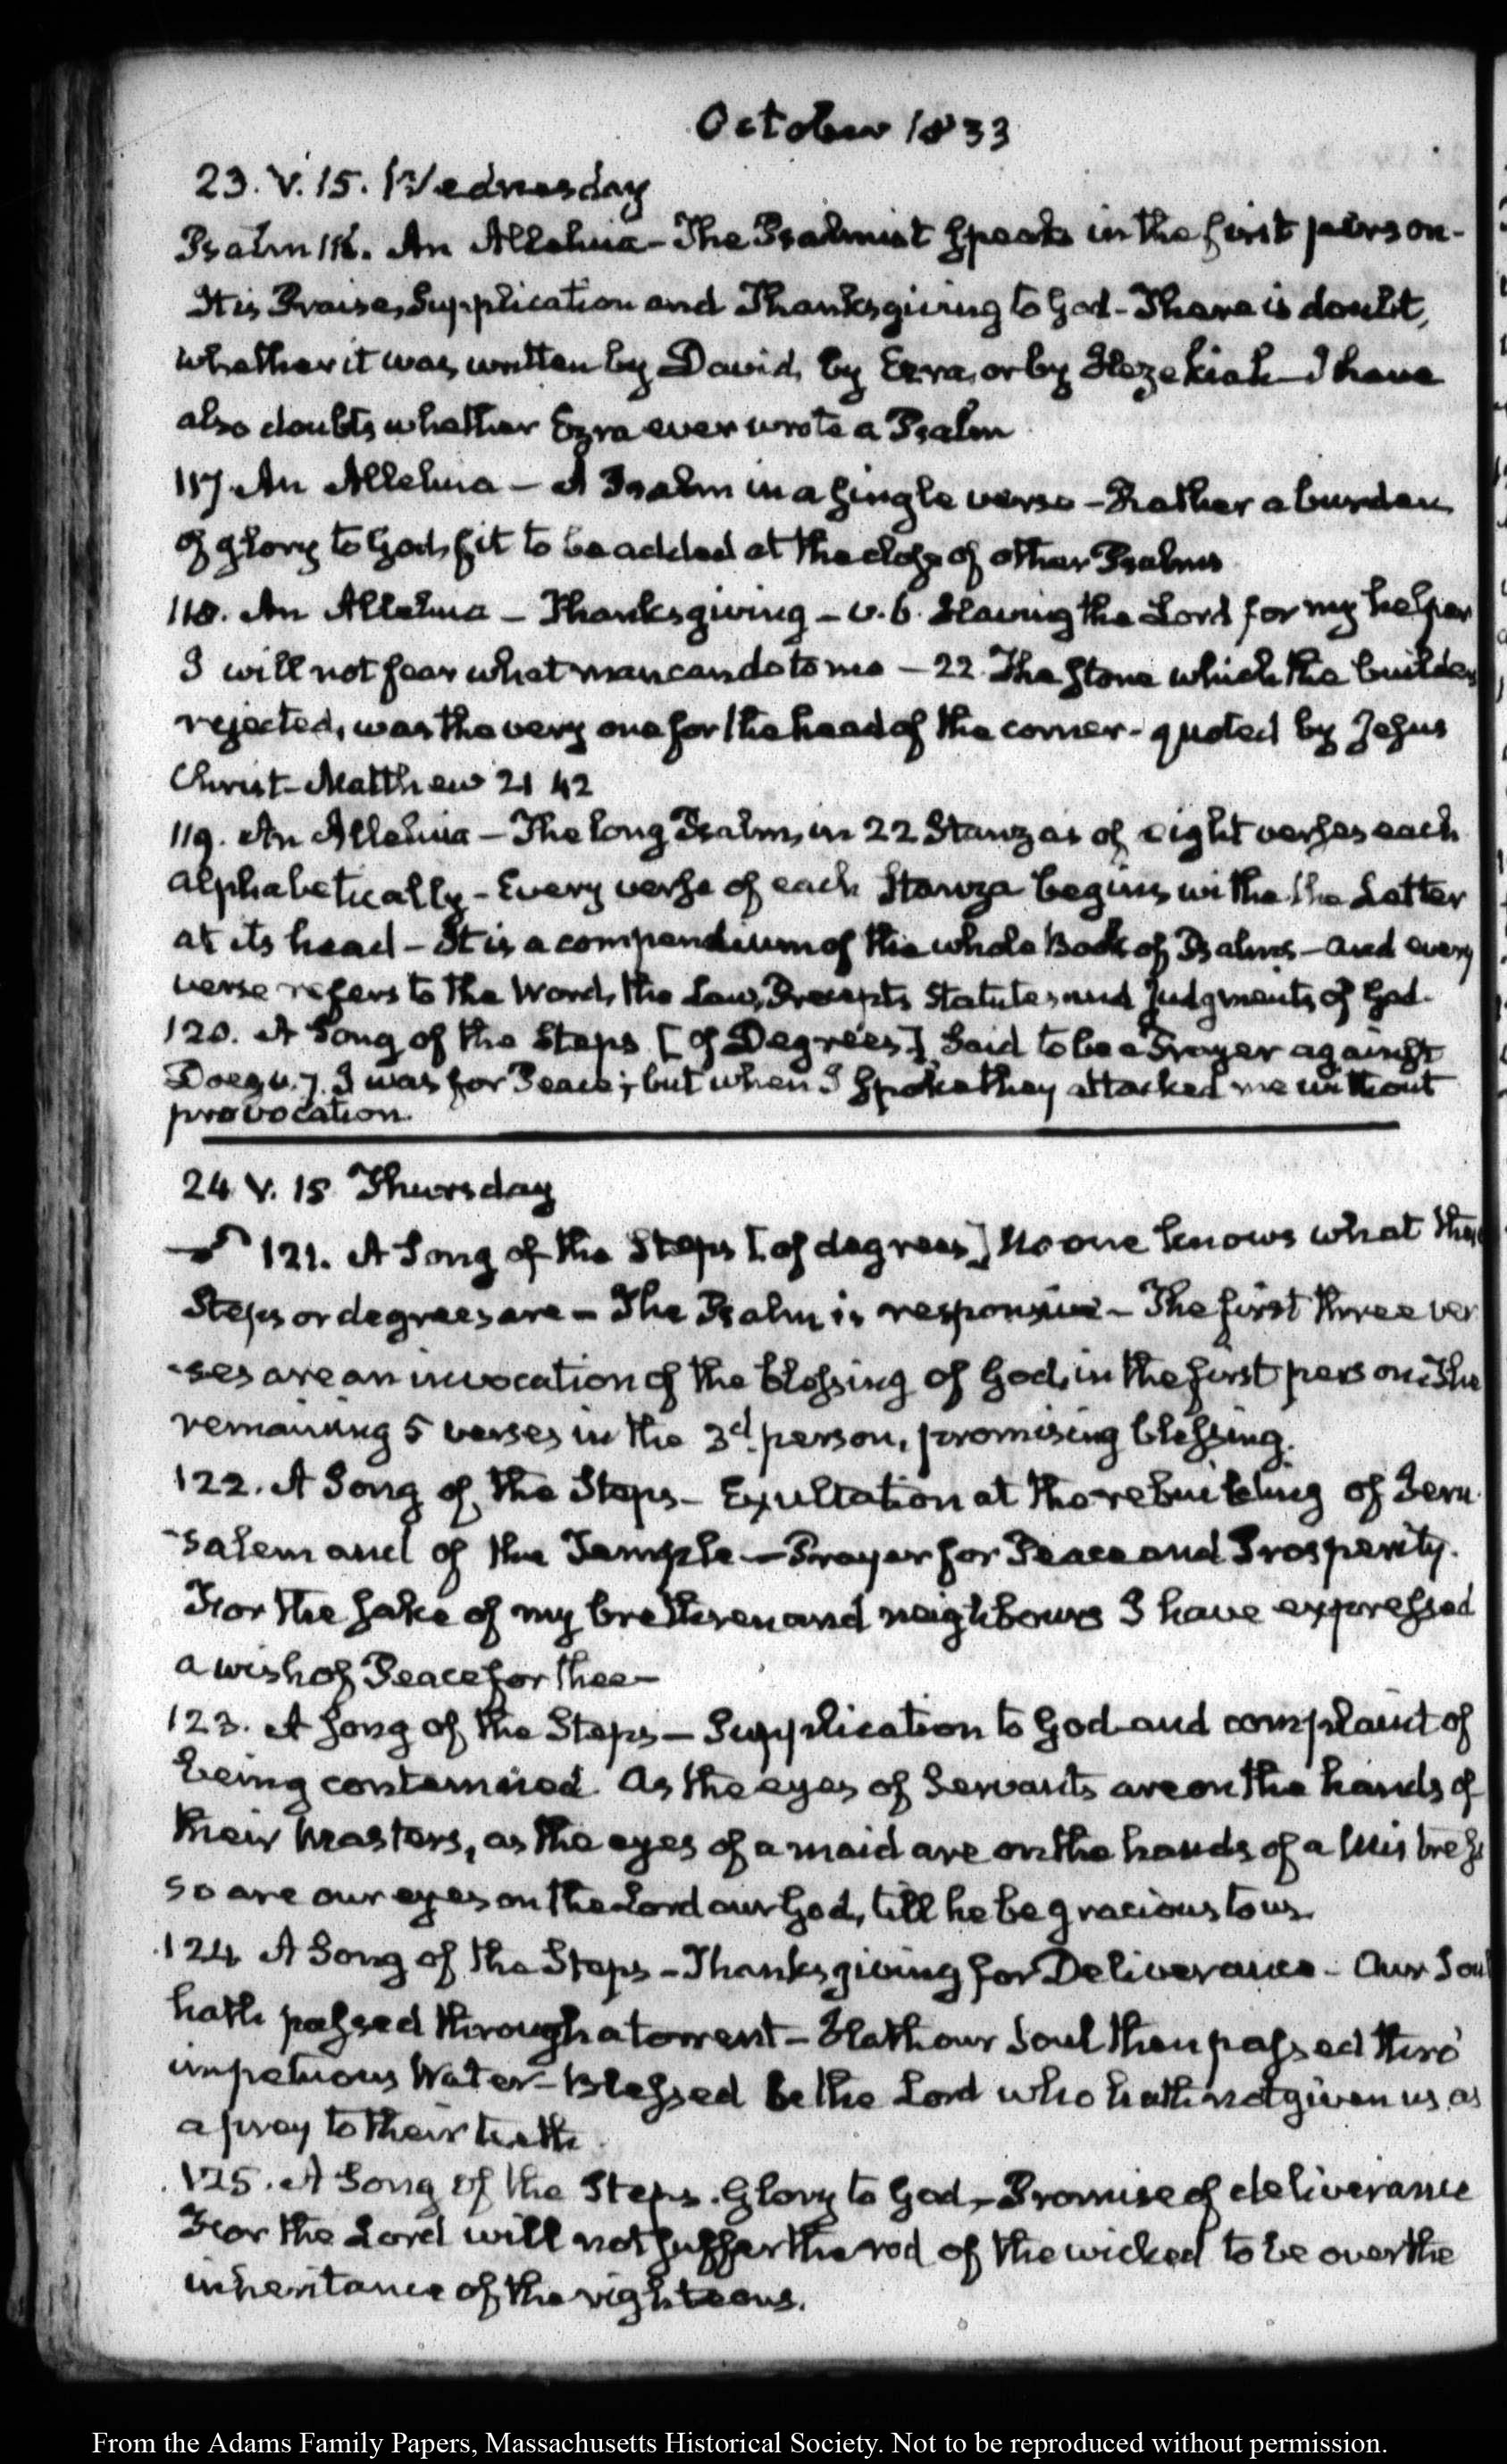 October 1833
23. V. 15. Wednesday
Psalm 116. An Alleluia - The Psalmist speaks in the first person -
It is Praise, Supplication and Thanksgiving to God - There is doubt,
whether it was written by David, by Ezra, or by Hezekiah - I have
also doubts whether Ezra ever wrote a Psalm
117 An Alleluia - A Psalm in a single verse - Rather a burden
of glory to God, fit to be added at the close of other Psalms
118. An Alleluia - Thanksgiving - v. 6. Having the Lord for my helper
I will not fear what man can do to me - 22. The stone which the builders
rejected, was the very one for the head of the corner - quoted by Jesus
Christ - Matthew 21 42
119. An Alleluia - The long Psalm, in 22 Stanzas of eight verses each
alphabetically - Every verse of each Stanza begins with the Letter
at its head - It is a compendium of the whole Book of Psalms - and every
verse refers to the Word, the Law, Precepts Statutes and Judgments of God.
120. A Song of the Steps [of Degrees] Said to be a Prayer against
Doeg v. 7. I was for Peace; but when I spoke they attacked me without
provocation.
24 V. 15 Thursday
121. A Song of the Steps [of degrees] No one knows what the
Steps or degrees are - The Psalm is responsive - The first three ver
-ses are an invocation of the blessing of God, in the first person. The
remaining 5 verses in the 3d. person, promising blessing.
122. A Song of the Steps - Exultation at the rebuilding of Jeru
-salem and of the Temple - Prayer for Peace and Prosperity.
For the sake of my brethren and neighbours I have expressed
a wish of Peace for thee -
123. A Song of the Steps - Supplication to God and complaint of
being contemned. As the eyes of Servants are on the hands of
their Masters, as the eyes of a maid are on the hands of a Mistress
so are our eyes on the Lord our God, till he be gracious to us.
124 A Song of the Steps - Thanksgiving for Deliverance - Our Soul
hath passed through a torrent - Hath our Soul then passed thro'
impetuous Water - Blessed be the Lord who hath not given us as
a prey to their teeth
125. A Song of the Steps. Glory to God, - Promise of deliverance
For the Lord will not suffer the rod of the wicked to be over the
inheritance of the righteous.
From the Adams Family Papers, Massachusetts Historical Society. Not to be reproduced without permission.